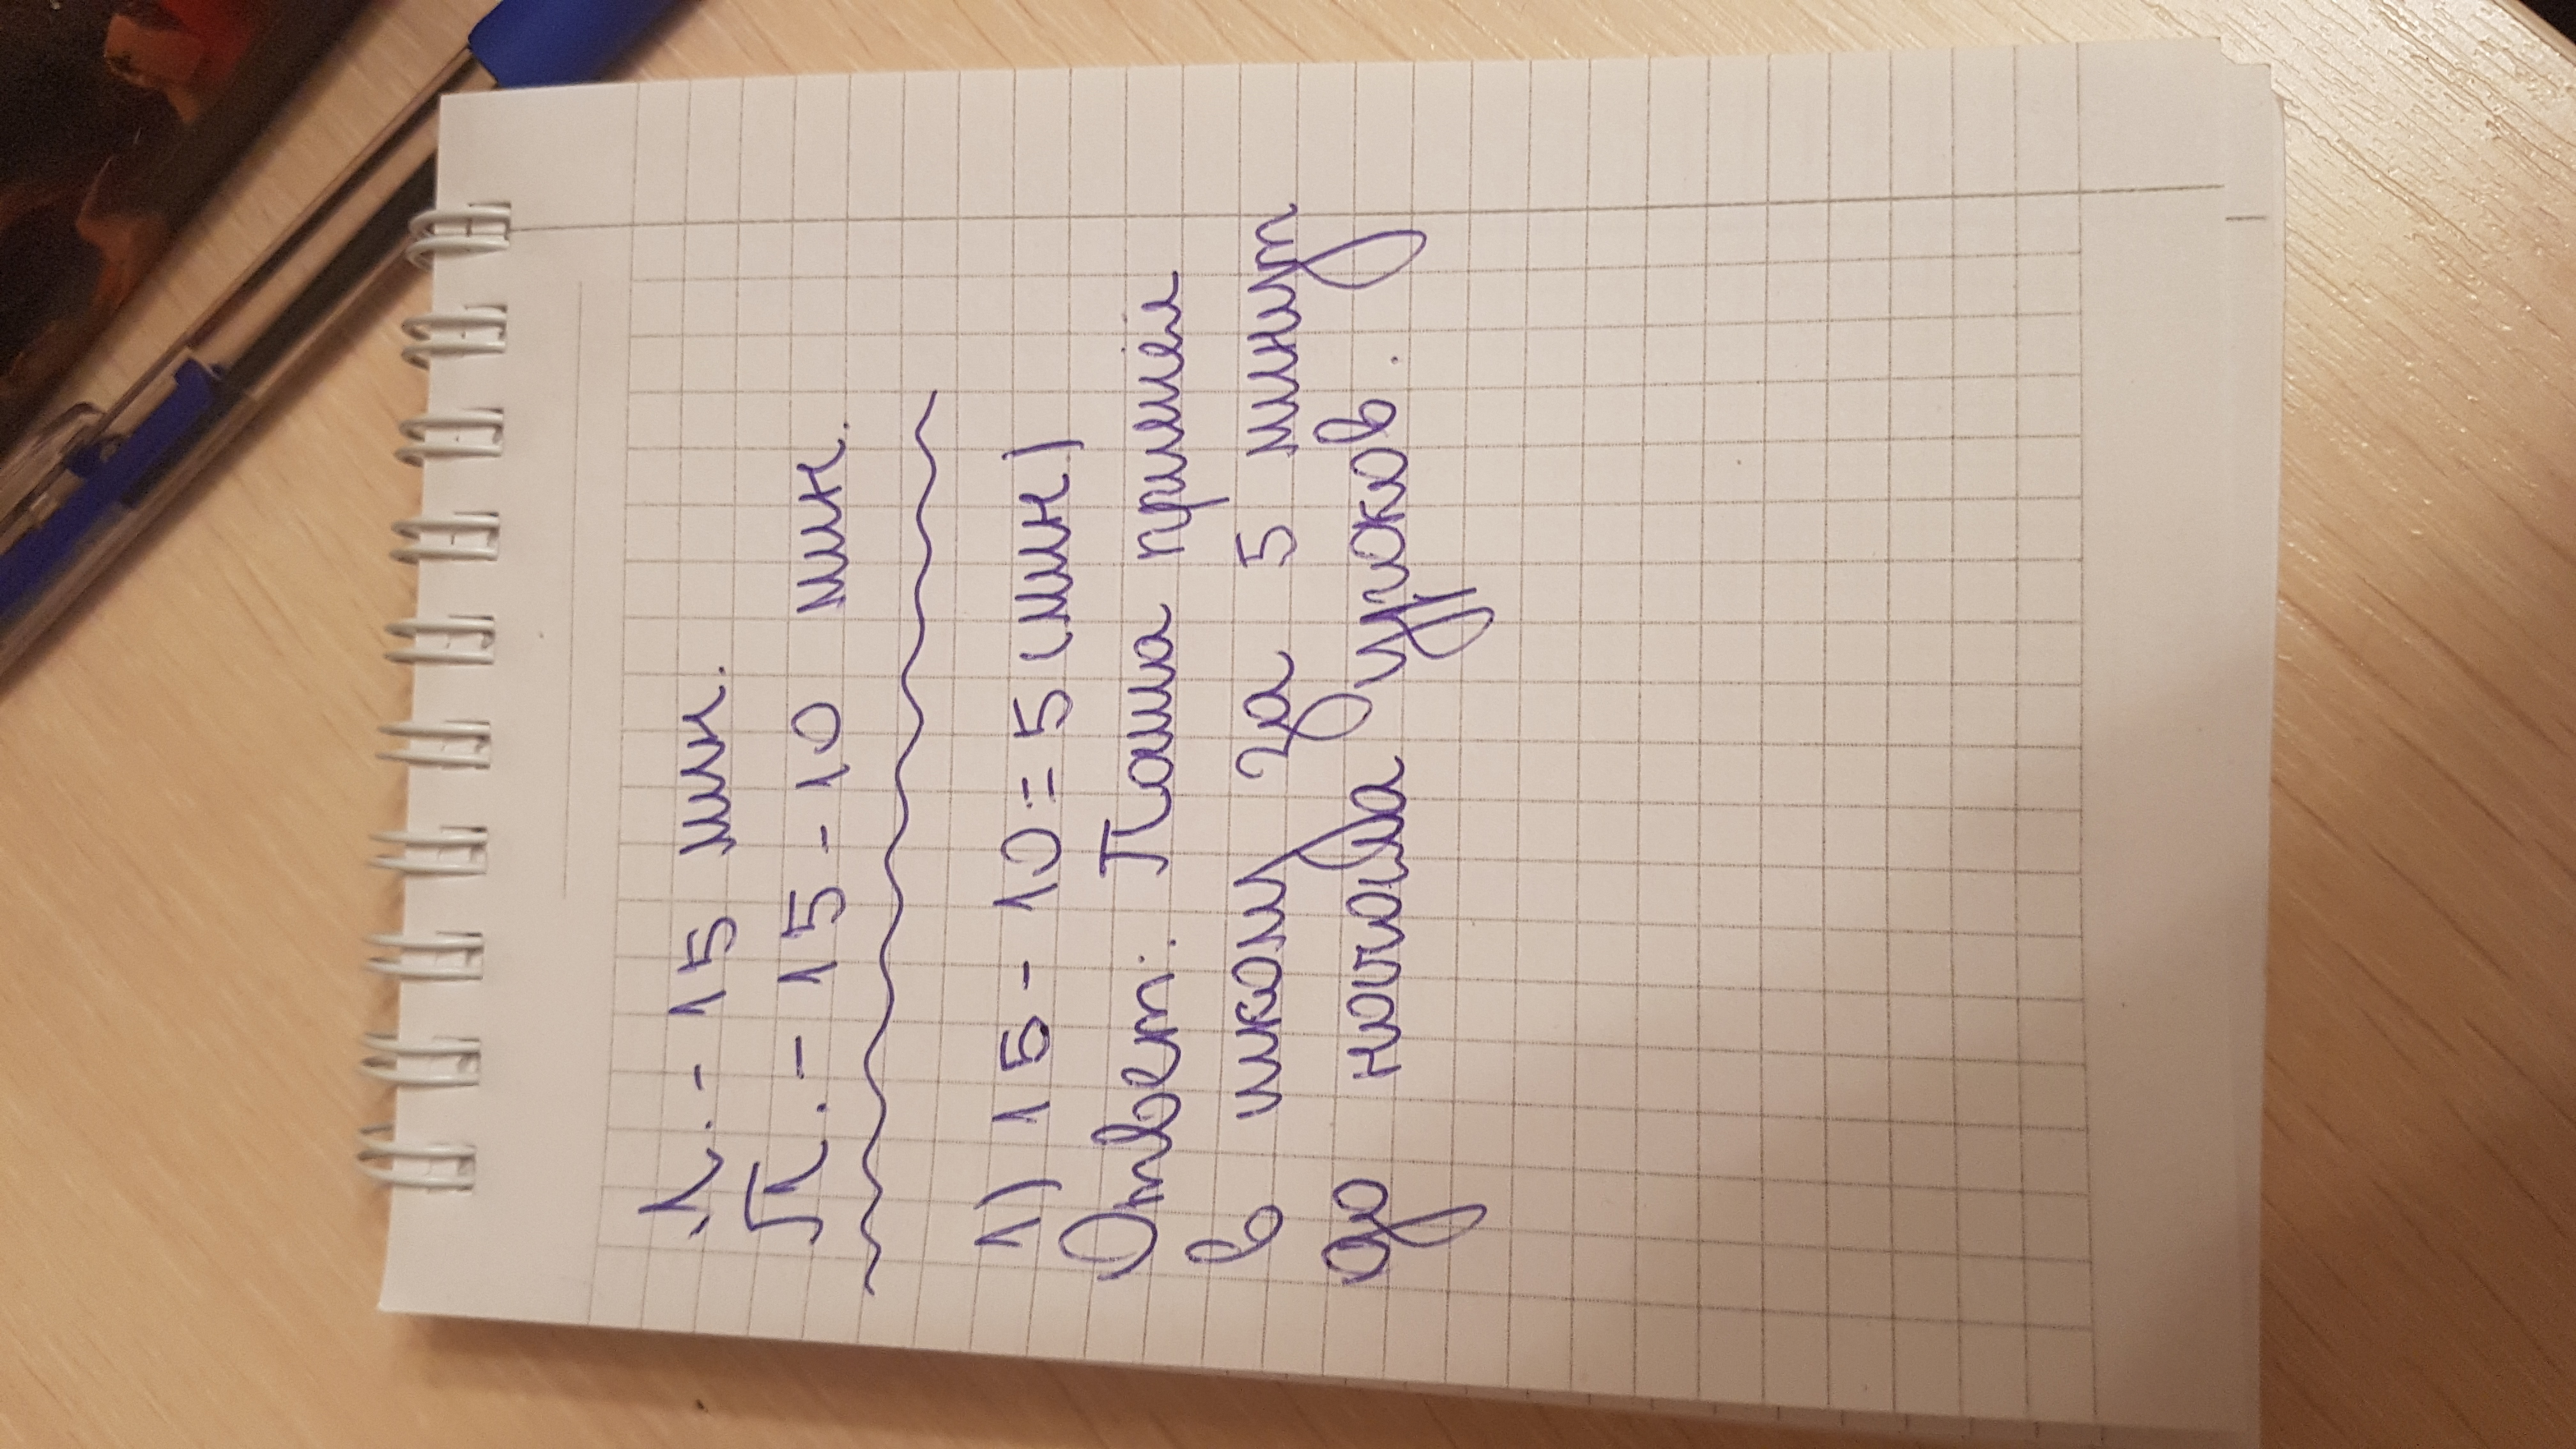 Л. - 15 мин.
П. - 15 - 10 мин.
1) 15 - 10 = 5 (мин)
Ответ: Паша пришёл
в школу за 5 минут
до начала уроков.